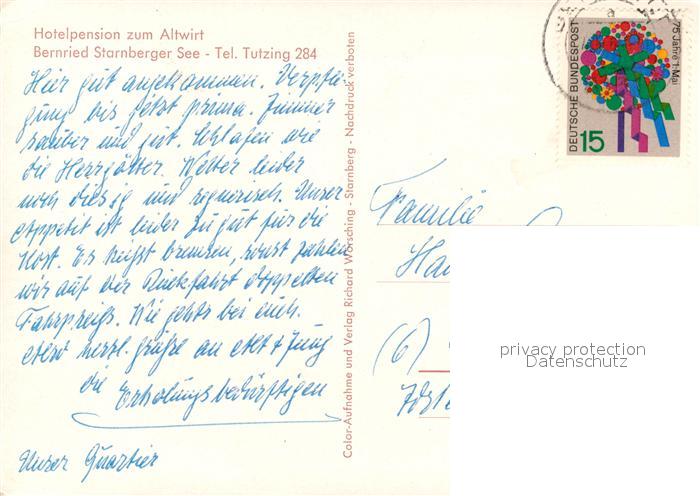 Hotelpension zum Altwirt
Bernried Starnberger See - Tel. Tutzing 284
Hier gut angekommen. Verpfle-
gung bis jetzt prima. Zimmer
sauber und gut. Schlafen wie
die Herrgötter. Wetter leider
noch diesig und regnerisch. Unser
Appetit ist leider zu gut für die
Kost. Es heißt bremsen, sonst zahlen
wir auf der Rückfahrt doppelten
Fahrpreiß. Wie gehts bei euch.
Also herzl. Grüße an Alt & Jung
die Erholungsbedürftigen
Unser Quartier
Color-Aufnahme und Verlag Richard Wörsching - Starnberg - Nachdruck verboten
DEUTSCHE BUNDESPOST
15
75 Jahre 1. Mai
Familie
(6)
privacy protection
Datenschutz